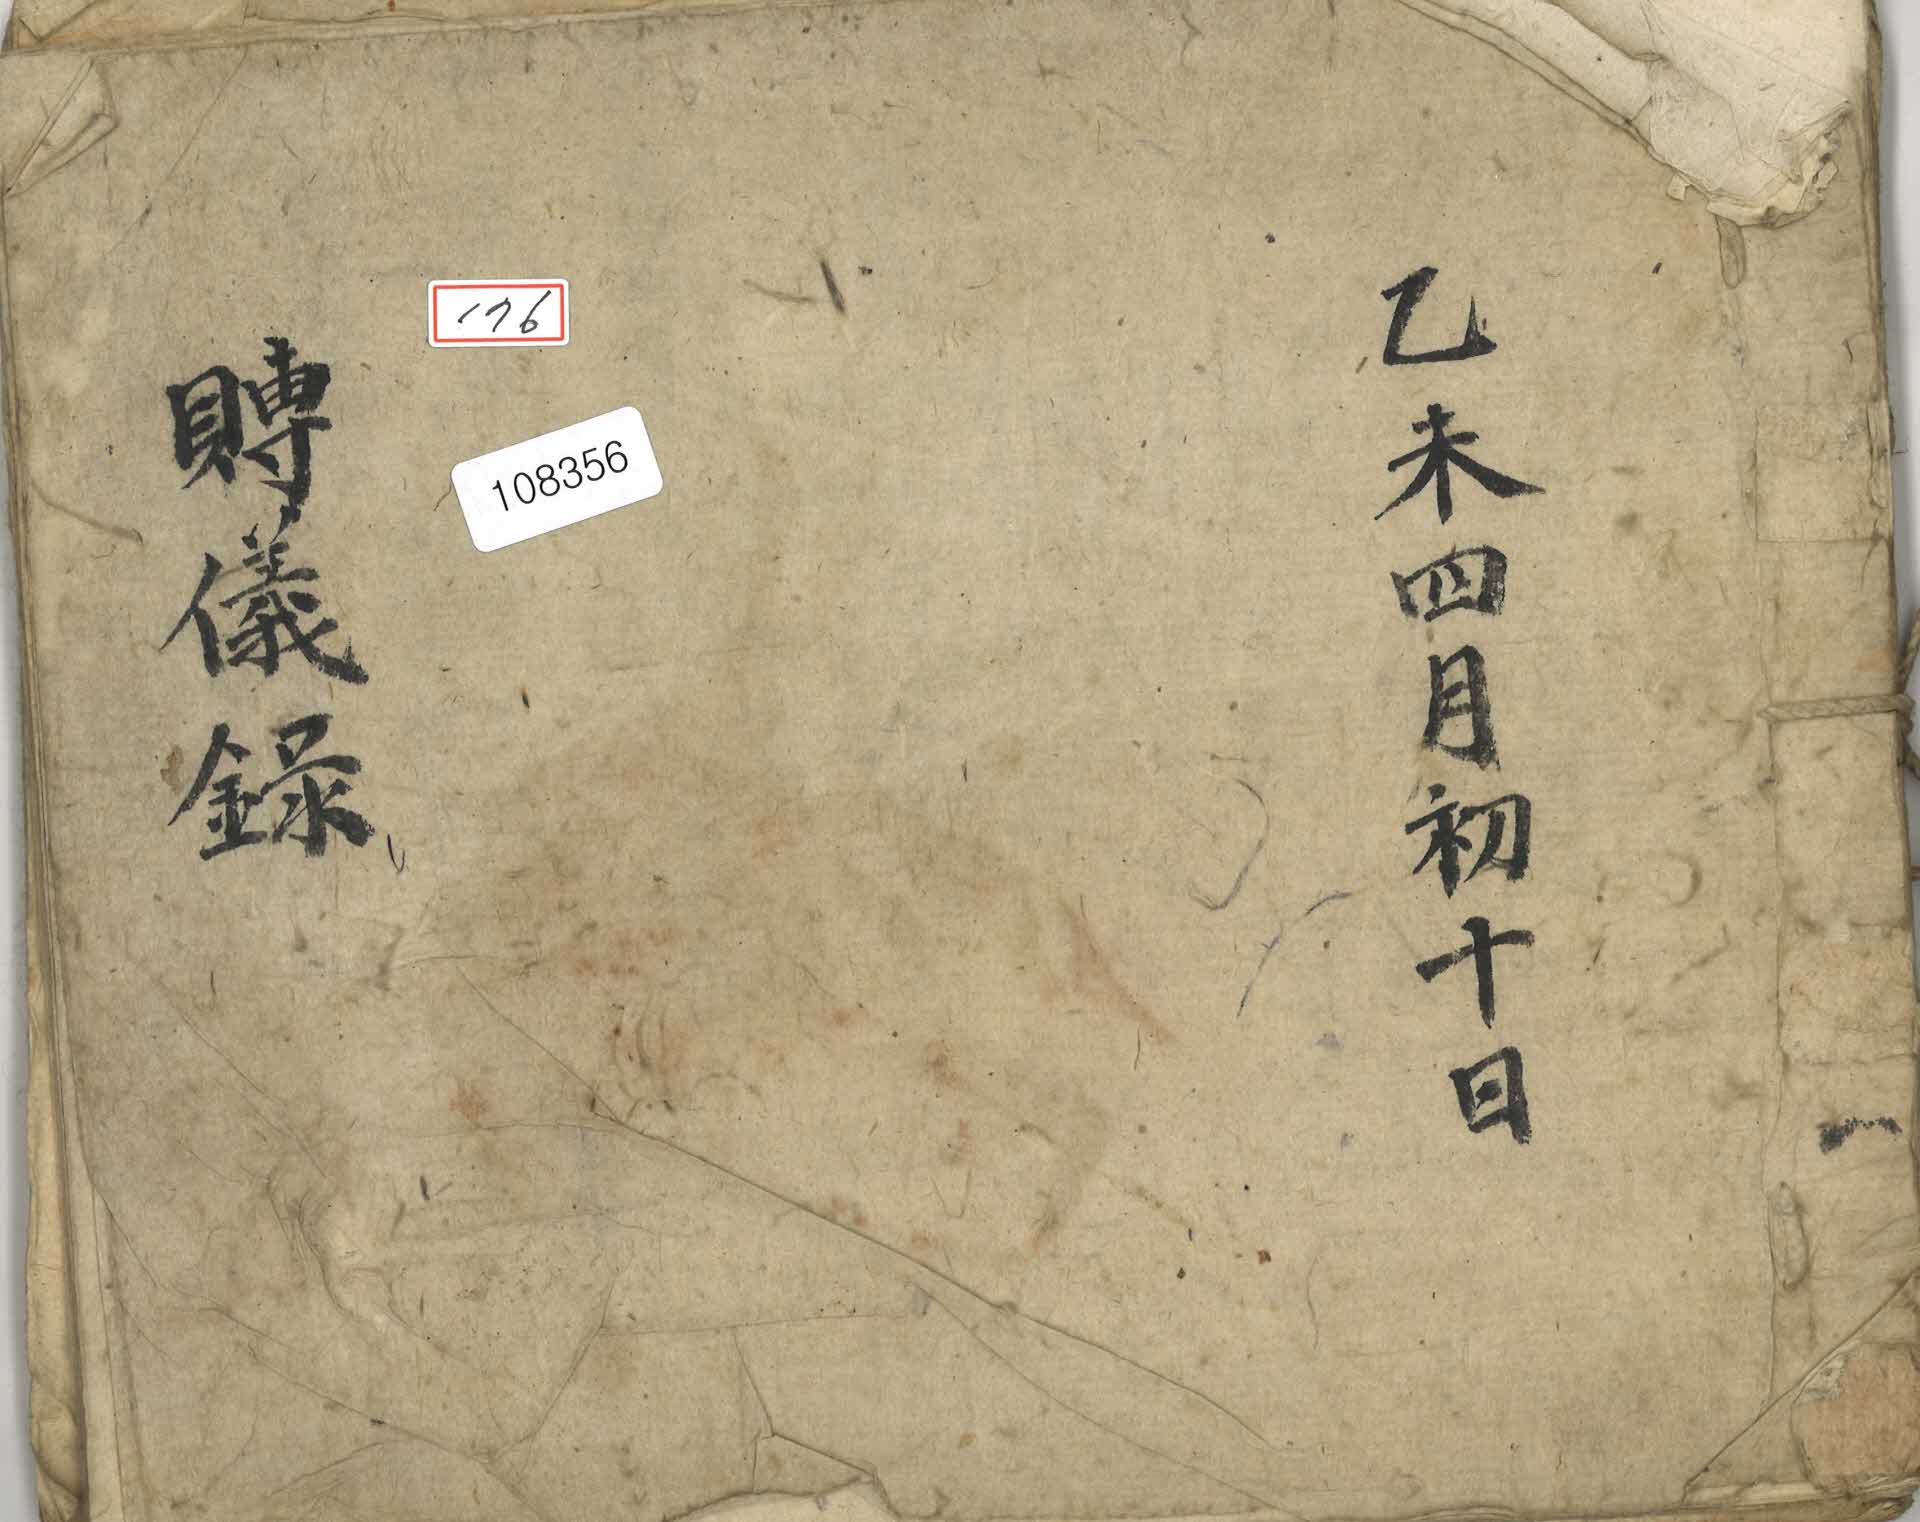 乙未四月初十日
賻儀錄
176
108356